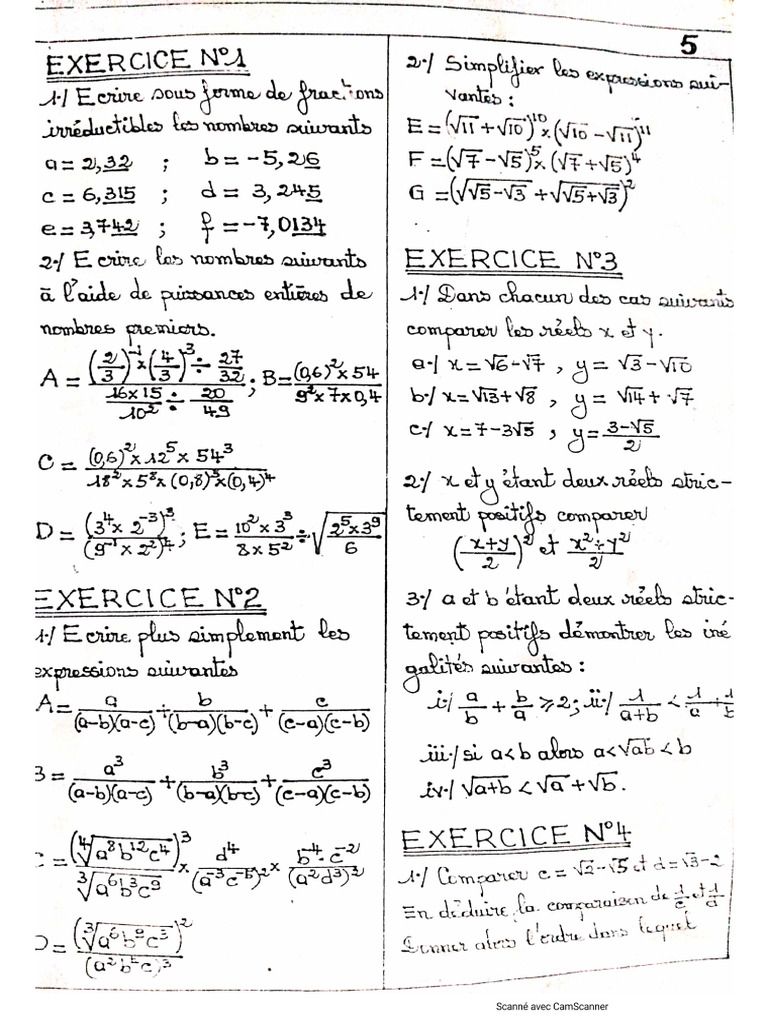 5
EXERCICE N°1
1./ Ecrire sous forme de fractions
irréductibles les nombres suivants
a = 2,32 ; b = -5,26
c = 6,315 ; d = 3,245
e = 3,742 ; f = -7,0134
2./ Ecrire les nombres suivants
à l'aide de puissances entières de
nombres premiers.
A = ((2/3)^-1 × (4/3)^3 ÷ 27/32) / (16×15/10^2 ÷ 20/49) ; B = ((0,6)^2 × 54) / (9^2 × 7 × 0,4)
C = ((0,6)^2 × 12^5 × 54^3) / (18^2 × 5^8 × (0,8)^3 × (0,4)^4)
D = (3^4 × 2^-3)^3 / (9^-1 × 2^2)^4 ; E = (10^2 × 3^3) / (8 × 5^2) ÷ √((2^5 × 3^9) / 6)
EXERCICE N°2
1./ Ecrire plus simplement les
expressions suivantes
A = a/((a-b)(a-c)) + b/((b-a)(b-c)) + c/((c-a)(c-b))
B = a^3/((a-b)(a-c)) + b^3/((b-a)(b-c)) + c^3/((c-a)(c-b))
C = (⁴√(a^8 b^12 c^4))^3 / ³√(a^6 b^3 c^9) × d^4/(a^-3 c^-5)^2 × (b^-4 · c^-2)/(a^2 d^3)^2
D = (³√(a^6 b^9 c^3))^2 / (a^2 b^2 c)^3
2./ Simplifier les expressions sui-
vantes :
E = (√11 + √10)^10 × (√10 - √11)^11
F = (√7 - √5)^5 × (√7 + √5)^4
G = (√(√5 - √3) + √(√5 + √3))^2
EXERCICE N°3
1./ Dans chacun des cas suivants
comparer les réels x et y.
a./ x = √6 - √7 , y = √3 - √10
b./ x = √13 + √8 , y = √14 + √7
c./ x = 7 - 3√5 , y = (3 - √5)/2
2./ x et y étant deux réels stric-
tement positifs comparer
((x+y)/2)^2 et (x^2 + y^2)/2
3./ a et b étant deux réels stric-
tement positifs démontrer les iné
galités suivantes :
i./ a/b + b/a ⩾ 2 ; ii./ 1/(a+b) < 1/a + 1/b
iii./ si a < b alors a < √ab < b
iv./ √(a+b) < √a + √b.
EXERCICE N°4
1./ Comparer c = √2 - √5 et d = √3 - 2
En déduire la comparaison de 1/c et 1/d
Donner alors l'ordre dans lequel
Scanné avec CamScanner